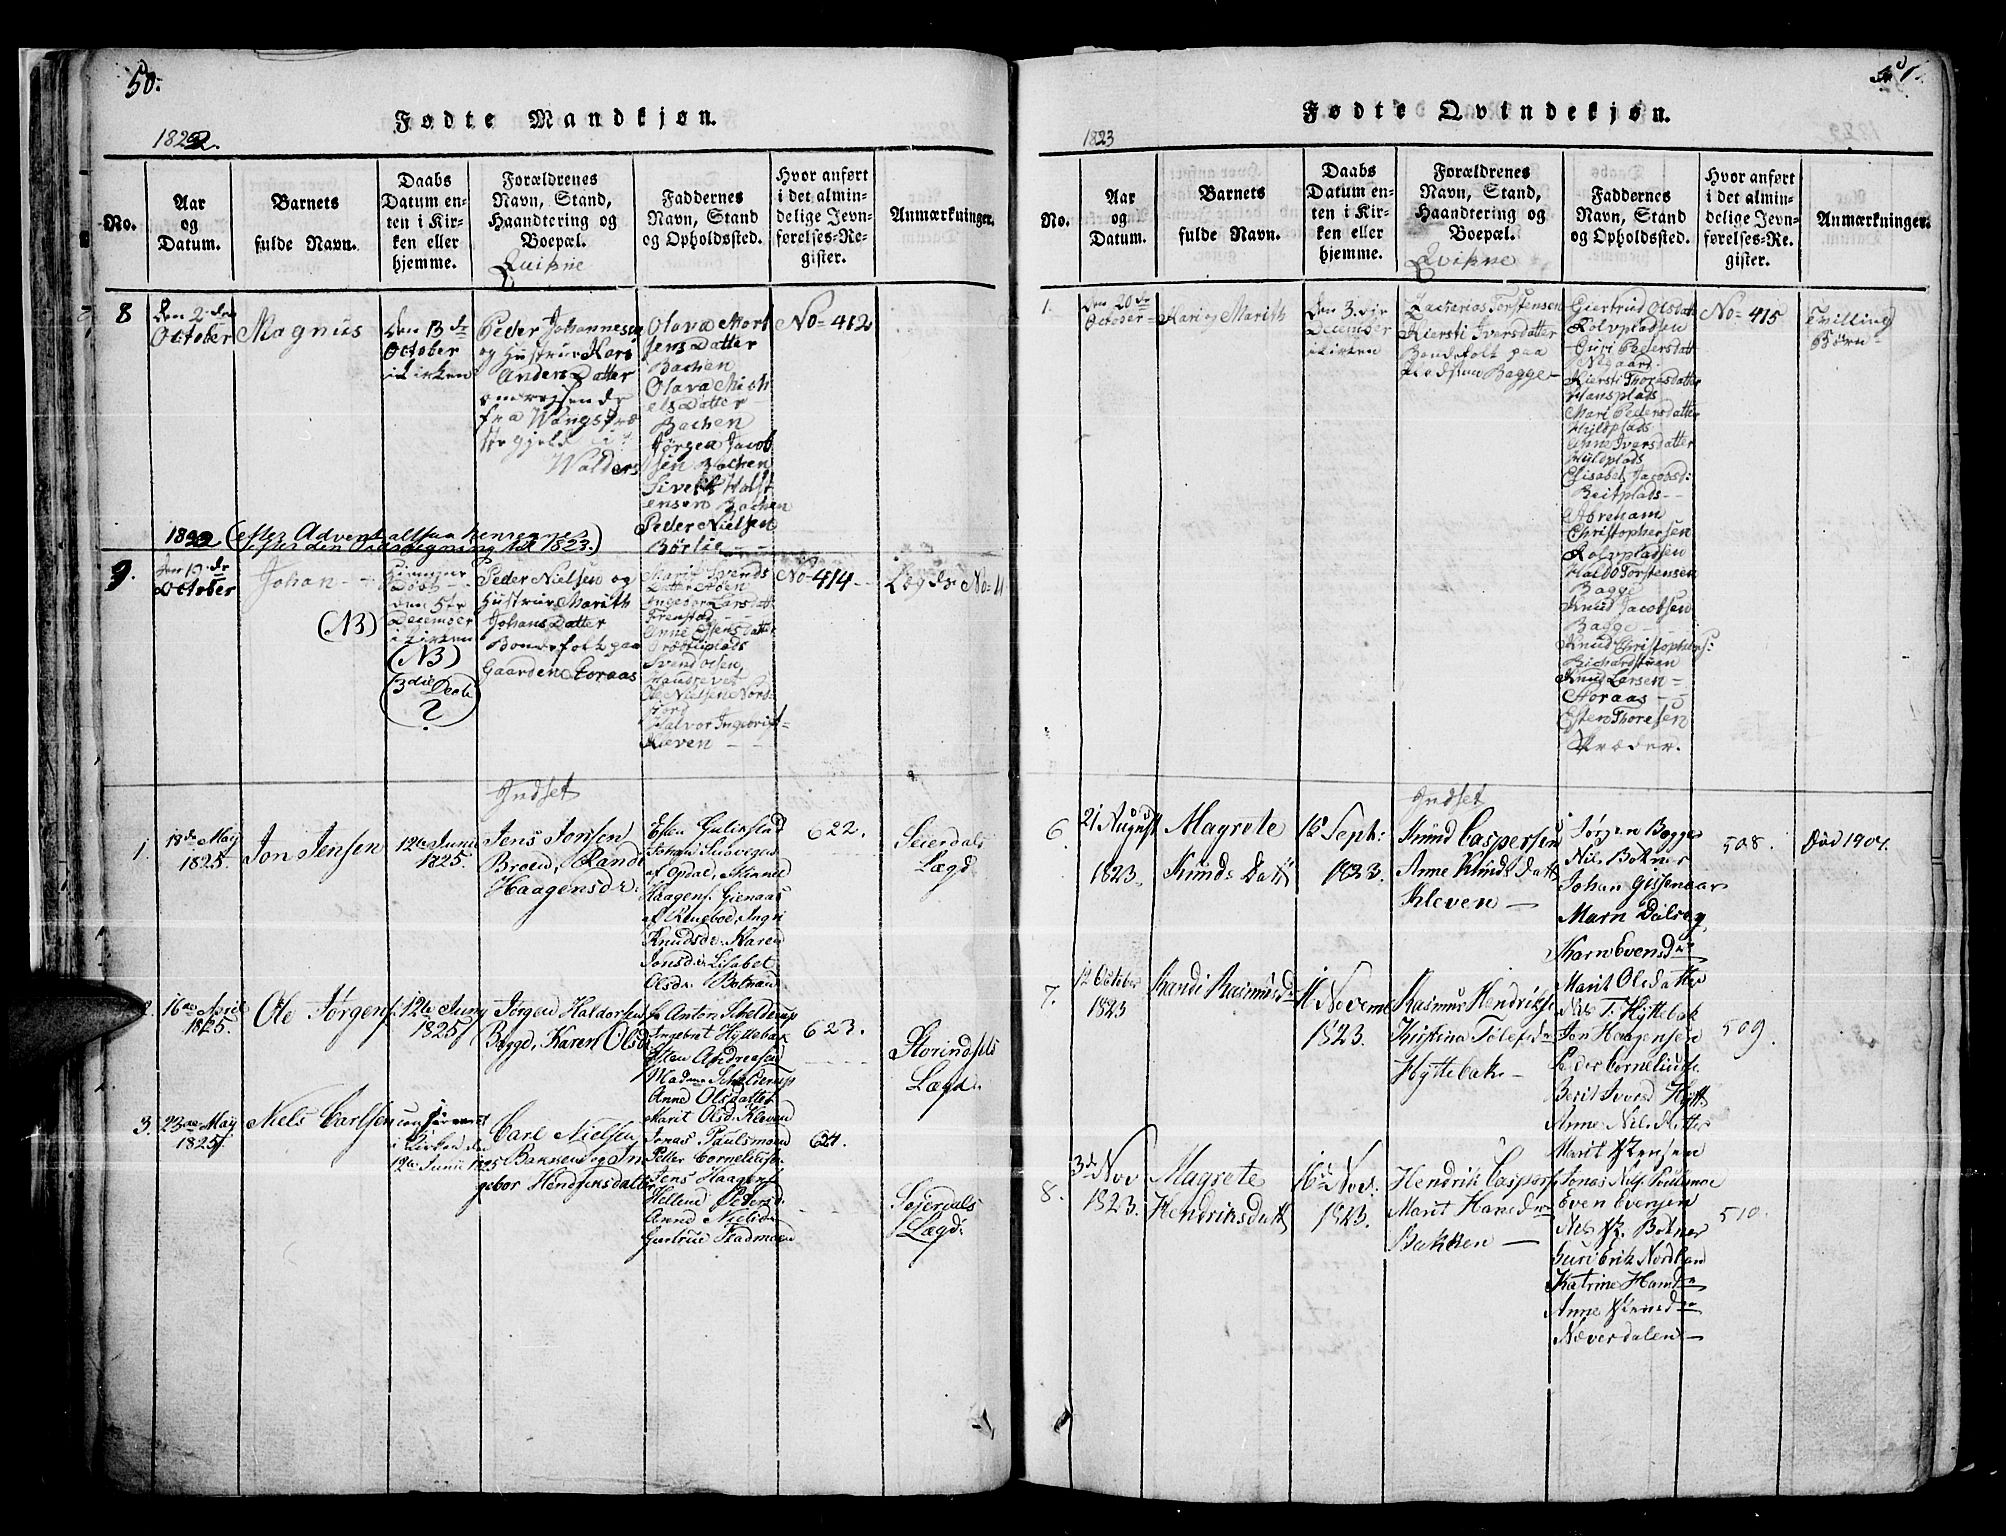 50.
Fødte Mandkjøn.
1822.
No.
Aar
og
Datum.
Barnets
fulde Navn.
Daabs
Datum en-
ten i Kir-
ken eller
hjemme.
Forældrenes
Navn, Stand,
Haandtering og
Boepæl.
Qvikne
Faddernes
Navn, Stand
og Opholdssted.
Hvor anført
i det almin-
delige Jevn-
førelses-Re-
gister.
Anmærkninger.
8
Den 2den
October
Magnus
Den 13de
October
i Kirken
Peder Johannesen
og Hustrue Kari
Anders Datter
omreisende
fra Wangs Præ
stegjeld i
Walders
Olava Mort
ens Datter
Bachen
Olava Mich
els Datter
Bachen
Jørgen Jacob
sen Bachen
Sivert Halst
ensen Bachen
Peder Nielsen
Børlie
No 412
1822 (efter Advent altsaa henregnes
efter den Tidsberegning til 1823.)
9.
October
Johan
(NB)
Hjemme
Døbt
den 5te
December
i Kirken
(NB)
3die Deels
?
Peder Nielsen og
Hustrue Marith
Johans Datter
Bondefolk paa
Gaarden Storaas
Marit Svends
Datter
Ingebor Larsdatt
Frenstad
Anne Estens Datter
Svend Olsen
Ole Nielsen Nord
Halvor Ingebrigt
Kleven
No 414
Lægds No 11
Indset
1.
18de Maij
1825.
Jon Jensen
12te Junii
1825.
Jens Jonsen
Broen, Rande
Haagensdr.
Esten Gulikstad
Johan
af Opdal,
Haagens. Gienaas
af Rennebod, Ingri
Knudsdr. Karen
Jonsdr. Lisabet
Olsdr. Botnan
622.
Seierdals
Lægd
2.
16de April
1825.
Ole Jørgens.
12te Juny
1825
Jørgen Haldorsen
Bagge, Karen Olsd
Anton Schelderup
Ingebret Hyttebak
Esten Andreasen
Madme Schelderup
Anne Olsdatter
Marit Olsd. Kleven
623.
Storindsets
Lægd.
3.
23de Maij
1825.
Niels Carlsen
confirmeret
i Kirken den
12te Junii 1825
Carl Nielsen
Bakken og In
gebor Hendriksdatter
Jonas Paulsmoen
Petter Corneliuss.
Jens Haagens.
Hellene Pedersd.
Anne Nielsd.
Giertrue Stadmoen
624.
Seierdals
Lægd.
Fødte Qvindekjøn.
1823
No.
Aar
og
Datum.
Barnets
fulde Navn.
Daabs
Datum en-
ten i Kir-
ken eller
hjemme.
Forældrenes
Navn, Stand,
Haandtering og
Boepæl.
Qvikne
Faddernes
Navn, Stand
og Opholdssted.
Hvor anført
i det almin-
delige Jevn-
førelses-Re-
gister.
Anmærkninger.
1.
Den 20de
October
Kari og Marith
Den 3die
December
i Kirken
Zacharias Torstensen
Kiersti Iversdatter
Bondefolk paa
Bagge
Giertrud Olsdatt
Kolvpladsen
Guri Pedersdatt
Nygaard
Kiersti Thoresdatter
Hansplads
Mari Pedersdatter
Hyldplads
Anne Iversdatter
Hyldplads
Elisabet Jacobsd:
Beitplads
Abreham
Christophersen
Kolvpladsen
Haldo Torstensen
Bagge
Knud Jacobsen
Bagge
Knud Christophers:
Richardstuen
Knud Larsen
Storaas
Esten Thoresen
Stræder.
No 415
Tvilling
Børn
Indset
6.
21 August
1823.
Magrete
Knuds Datt
15 Septh:
1823.
Knud Caspersen
Anne Knuds Datt
Kleven
Jørgen Bogge
Nil. Botner
Johan Gissenaas
Marn Dalsøg
Karn Evensdr
508.
Død 1907.
7.
12 October
1823
Randi Rasmusdr
11 Novemb
1823.
Rasmus Hendrikse
Kristina Tolefsdr
Hyttebak
Marit Olsdatter
Nils T. Hyttebak
Jon Haagensen
Peder Corneliusse
Berit Iversd Hytt
Anne Nil. Hitter
Marit
509.
8.
3de Nov
1823.
Magrete
Hendriksdatt
16de Nov:
1823.
Hendrik Caspers
Marit Hansdr
Bakken
Jonas Nils. Poulsmoe
Even Evensen
Nels Botner
Guri Erik Nordlien
Katrine Hansdr
Anne
Næverdalen
510.